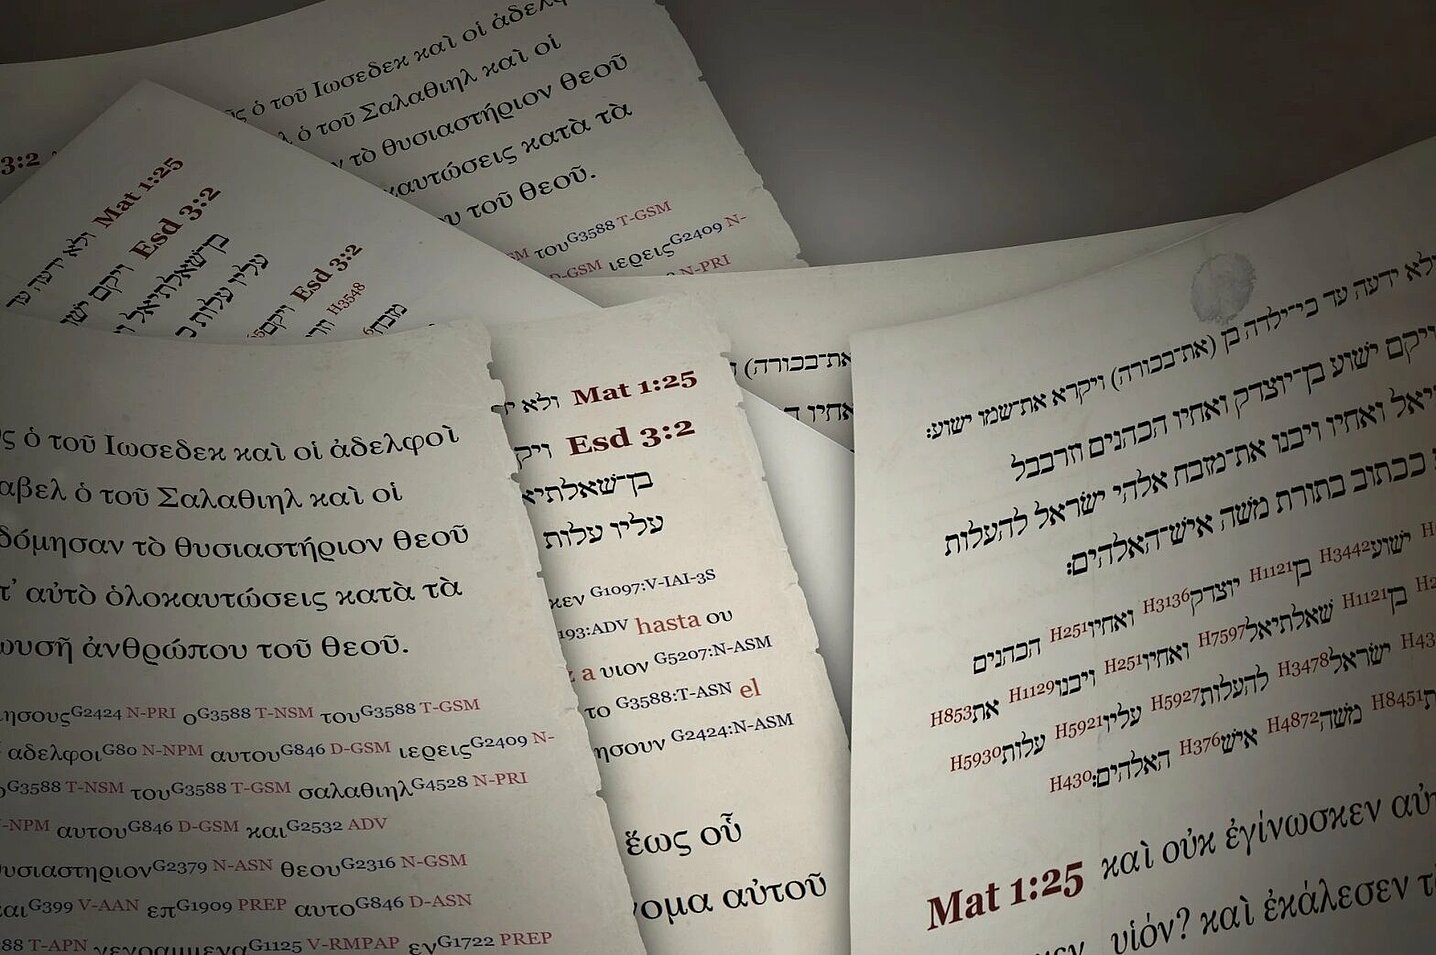 ὁ τοῦ Ιωσεδεκ καὶ οἱ
ὁ τοῦ Σαλαθιηλ καὶ οἱ
τὸ θυσιαστήριον θεοῦ
κατὰ τὰ
τοῦ θεοῦ.
του G3588 T-GSM
D-GSM ιερεις G2409 N-
N-PRI
3:2
Mat 1:25 ולא ידעה עד
Esd 3:2 ויקם
בן־שאלתיאל
עליו עלות
Esd 3:2 ויקם
H3548
מזבח
ὁ τοῦ Ιωσεδεκ καὶ οἱ ἀδελφοὶ
ὁ τοῦ Σαλαθιηλ καὶ οἱ
τὸ θυσιαστήριον θεοῦ
αὐτὸ ὁλοκαυτώσεις κατὰ τὰ
ἀνθρώπου τοῦ θεοῦ.
G2424 N-PRI ο G3588 T-NSM του G3588 T-GSM
αδελφοι G80 N-NPM αυτου G846 D-GSM ιερεις G2409 N-
G3588 T-NSM του G3588 T-GSM σαλαθιηλ G4528 N-PRI
-NPM αυτου G846 D-GSM και G2532 ADV
G2379 N-ASN θεου G2316 N-GSM
G399 V-AAN επ G1909 PREP αυτο G846 D-ASN
T-APN γεγραμμενα G1125 V-RMPAP εν G1722 PREP
Mat 1:25 ולא
Esd 3:2
עליו עלות
G1097:V-IAI-3S
193:ADV hasta ου
a υιον G5207:N-ASM
το G3588:T-ASN el
G2424:N-ASM
ἕως οὗ
αὐτοῦ
את־בכורה)
ולא ידעה עד כי־ילדה בן (את־בכורה) ויקרא את־שמו ישוע:
ויקם ישוע בן־יוצדק ואחיו הכהנים וזרבבל
ואחיו ויבנו את־מזבח אלהי ישראל להעלות
ככתוב בתורת משה איש־האלהים:
ישוע H3442 בן H1121 יוצדק H3136 ואחיו H251 הכהנים
בן H1121 שאלתיאל H7597 ואחיו H251 ויבנו H1129 את H853
ישראל H3478 להעלות H5927 עליו H5921 עלות H5930
H8451 משה H4872 איש H376 האלהים: H430
Mat 1:25 καὶ οὐκ ἐγίνωσκεν
υἱόν? καὶ ἐκάλεσεν